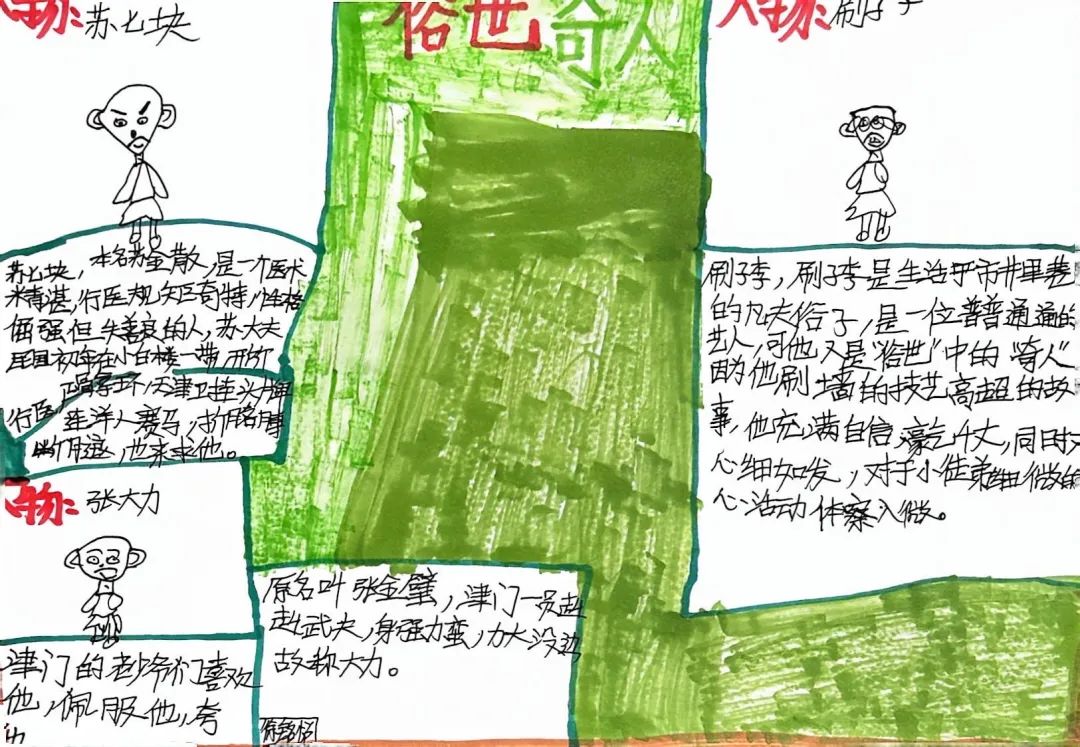 俗世奇人
人物: 苏七块
苏七块，本名苏金散，是一个医术
术精湛，行医规矩奇特，性格
倔强但失善良的人，苏大夫
民国初年在小白楼一带，所
行医，正骨拿环，天津卫挂头牌
连洋人赛马，折胳膊
也来求他。
人物: 刷子李
刷子李，刷子李是生活乎市井里巷
的凡夫俗子，是一位普普通通的
艺人，可他又是"俗世"中的"奇人"
因为他刷墙的技艺高超的故
事，他充满自信，豪气十丈，同时又
心细如发，对于小徒弟细微的
心活动体察入微。
人物: 张大力
津门的老少爷们喜欢
他，佩服他，夸
原名叫张金璧，津门一员赳
赳武夫，身强力蛮，力大没边
故称大力。